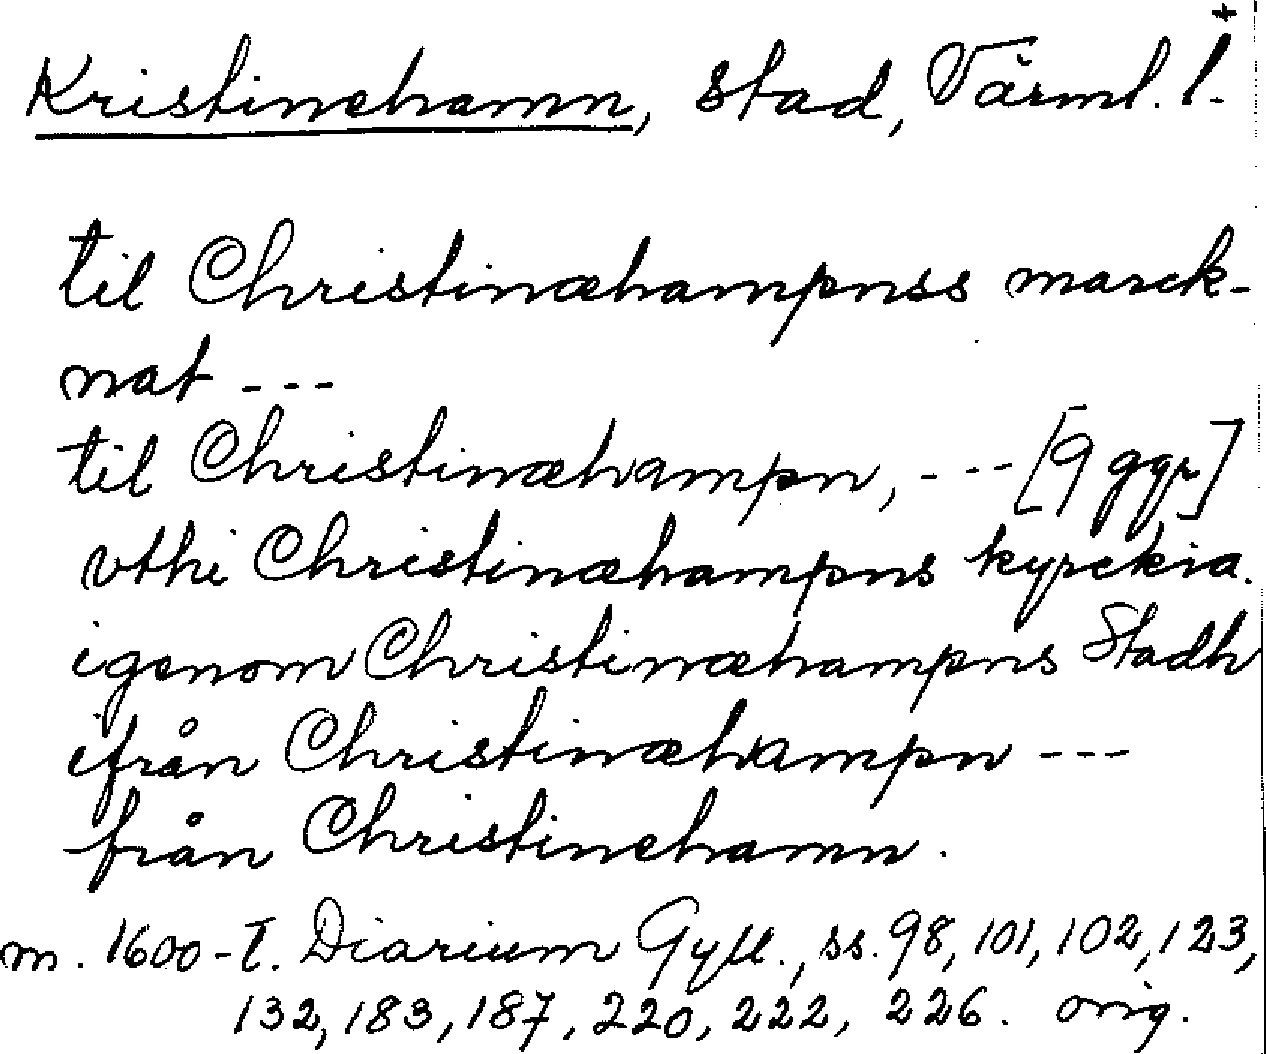 +
Kristinehamn, stad, Värml. l.
til Christinæhampnss marck-
nat ---
til Christinæhampn, --- [9 ggr]
vthi Christinæhampns kyrckia.
igenom Christinæhampns Stadh
ifrån Christinæhampn ---
från Christinehamn.
m. 1600-t. Diarium Gyll., ss. 98, 101, 102, 123,
132, 183, 187, 220, 222, 226. orig.